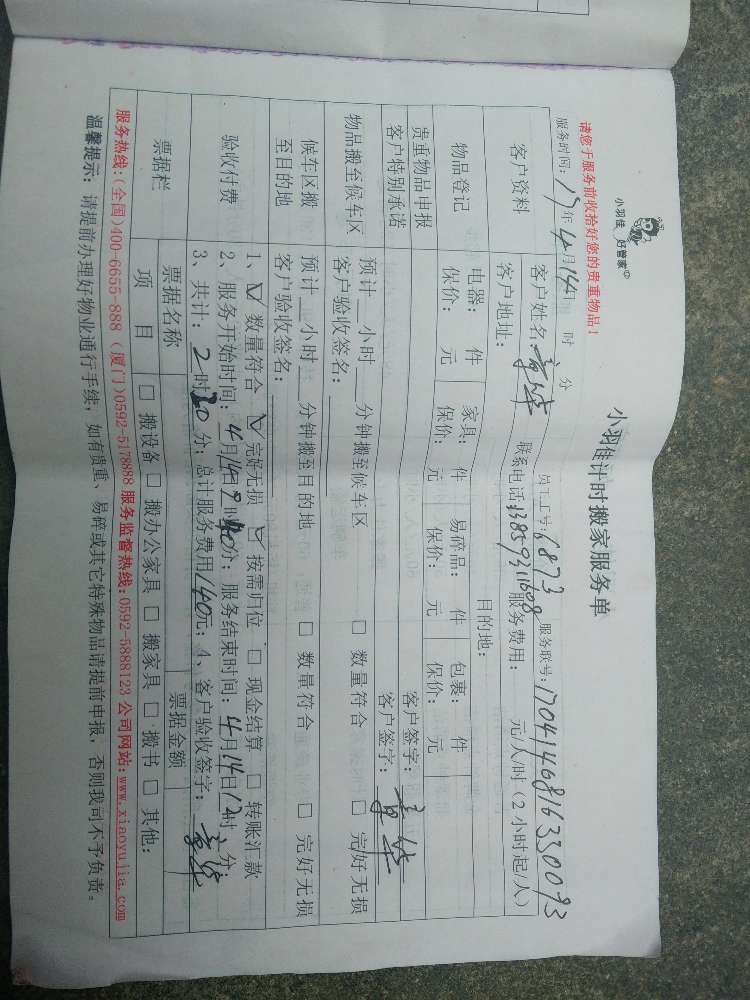 小羽佳 好管家
小羽佳计时搬家服务单
请您于服务前收拾好您的贵重物品！
服务时间：17年4月14日 时 分 员工工号：6873 服务联号：1704146816330093
客户资料 客户姓名： 联系电话：13859311608 服务费用： 元/人/时（2小时起/人）
客户地址： 目的地：
物品登记 电器： 件 家具： 件 易碎品： 件 包裹： 件
保价： 元 保价： 元 保价： 元 保价： 元
贵重物品申报 客户签字：
客户特别承诺 客户签字：
物品搬至候车区 预计 小时 分钟搬至候车区 □ 数量符合 □ 完好无损
客户验收签名：
候车区搬至目的地 预计 小时 分钟搬至目的地 □ 数量符合 □ 完好无损
客户验收签名：
验收付费 1、☑ 数量符合 ☑ 完好无损 ☑ 按需归位 □ 现金结算 □ 转账汇款
2、服务开始时间：4月14日9时40分；服务结束时间：4月14日12时 分；
3、共计：2时30分；总计服务费用140元；4、客户验收签字：
票据栏 票据名称 票据金额
项 目 □ 搬设备 □ 搬办公家具 □ 搬家具 □ 搬书 □ 其他：
服务热线：（全国）400-6655-888（厦门）0592-5178888 服务监督热线：0592-5888123 公司网站：www.xiaoyujia.com
温馨提示：请提前办理好物业通行手续，如有贵重、易碎或其它特殊物品请提前申报，否则我司不予负责。